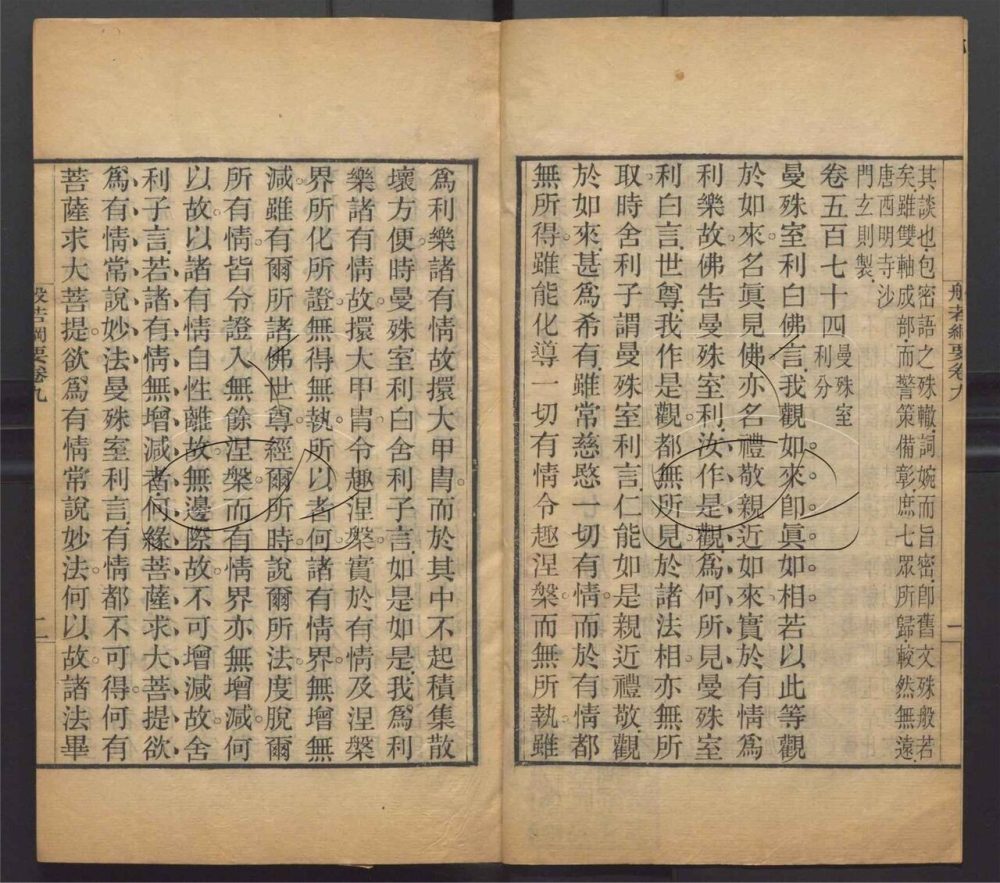 般若綱要卷九
一
其談也包密語之殊轍詞婉而旨密卽舊文殊般若
矣雖雙軸成部而警策備彰庶七眾所歸較然無遠
唐西明寺沙
門玄則製
卷五百七十四曼殊室利分
曼殊室利白佛言我觀如來卽眞如相若以此等觀
於如來名眞見佛亦名禮敬親近如來實於有情爲
利樂故佛告曼殊室利汝作是觀爲何所見曼殊室
利白言世尊我作是觀都無所見於諸法相亦無所
取時舍利子謂曼殊室利言仁能如是親近禮敬觀
於如來甚爲希有雖常慈愍一切有情而於有情都
無所得雖能化導一切有情令趣涅槃而無所執雖
爲利樂諸有情故擐大甲冑而於其中不起積集散
壞方便時曼殊室利白舍利子言如是如是我爲利
樂諸有情故擐大甲冑令趣涅槃實於有情及涅槃
界所化所證無得無執所以者何諸有情界無增無
減雖有爾所諸佛世尊經爾所時說爾所法度脫爾
所有情皆令證入無餘涅槃而有情界亦無增減何
以故以諸有情自性離故無邊際故不可增減故舍
利子言若諸有情無增減者何緣菩薩求大菩提欲
爲有情常說妙法曼殊室利言有情都不可得何有
菩薩求大菩提欲爲有情常說妙法何以故諸法畢
般若綱要卷九
二